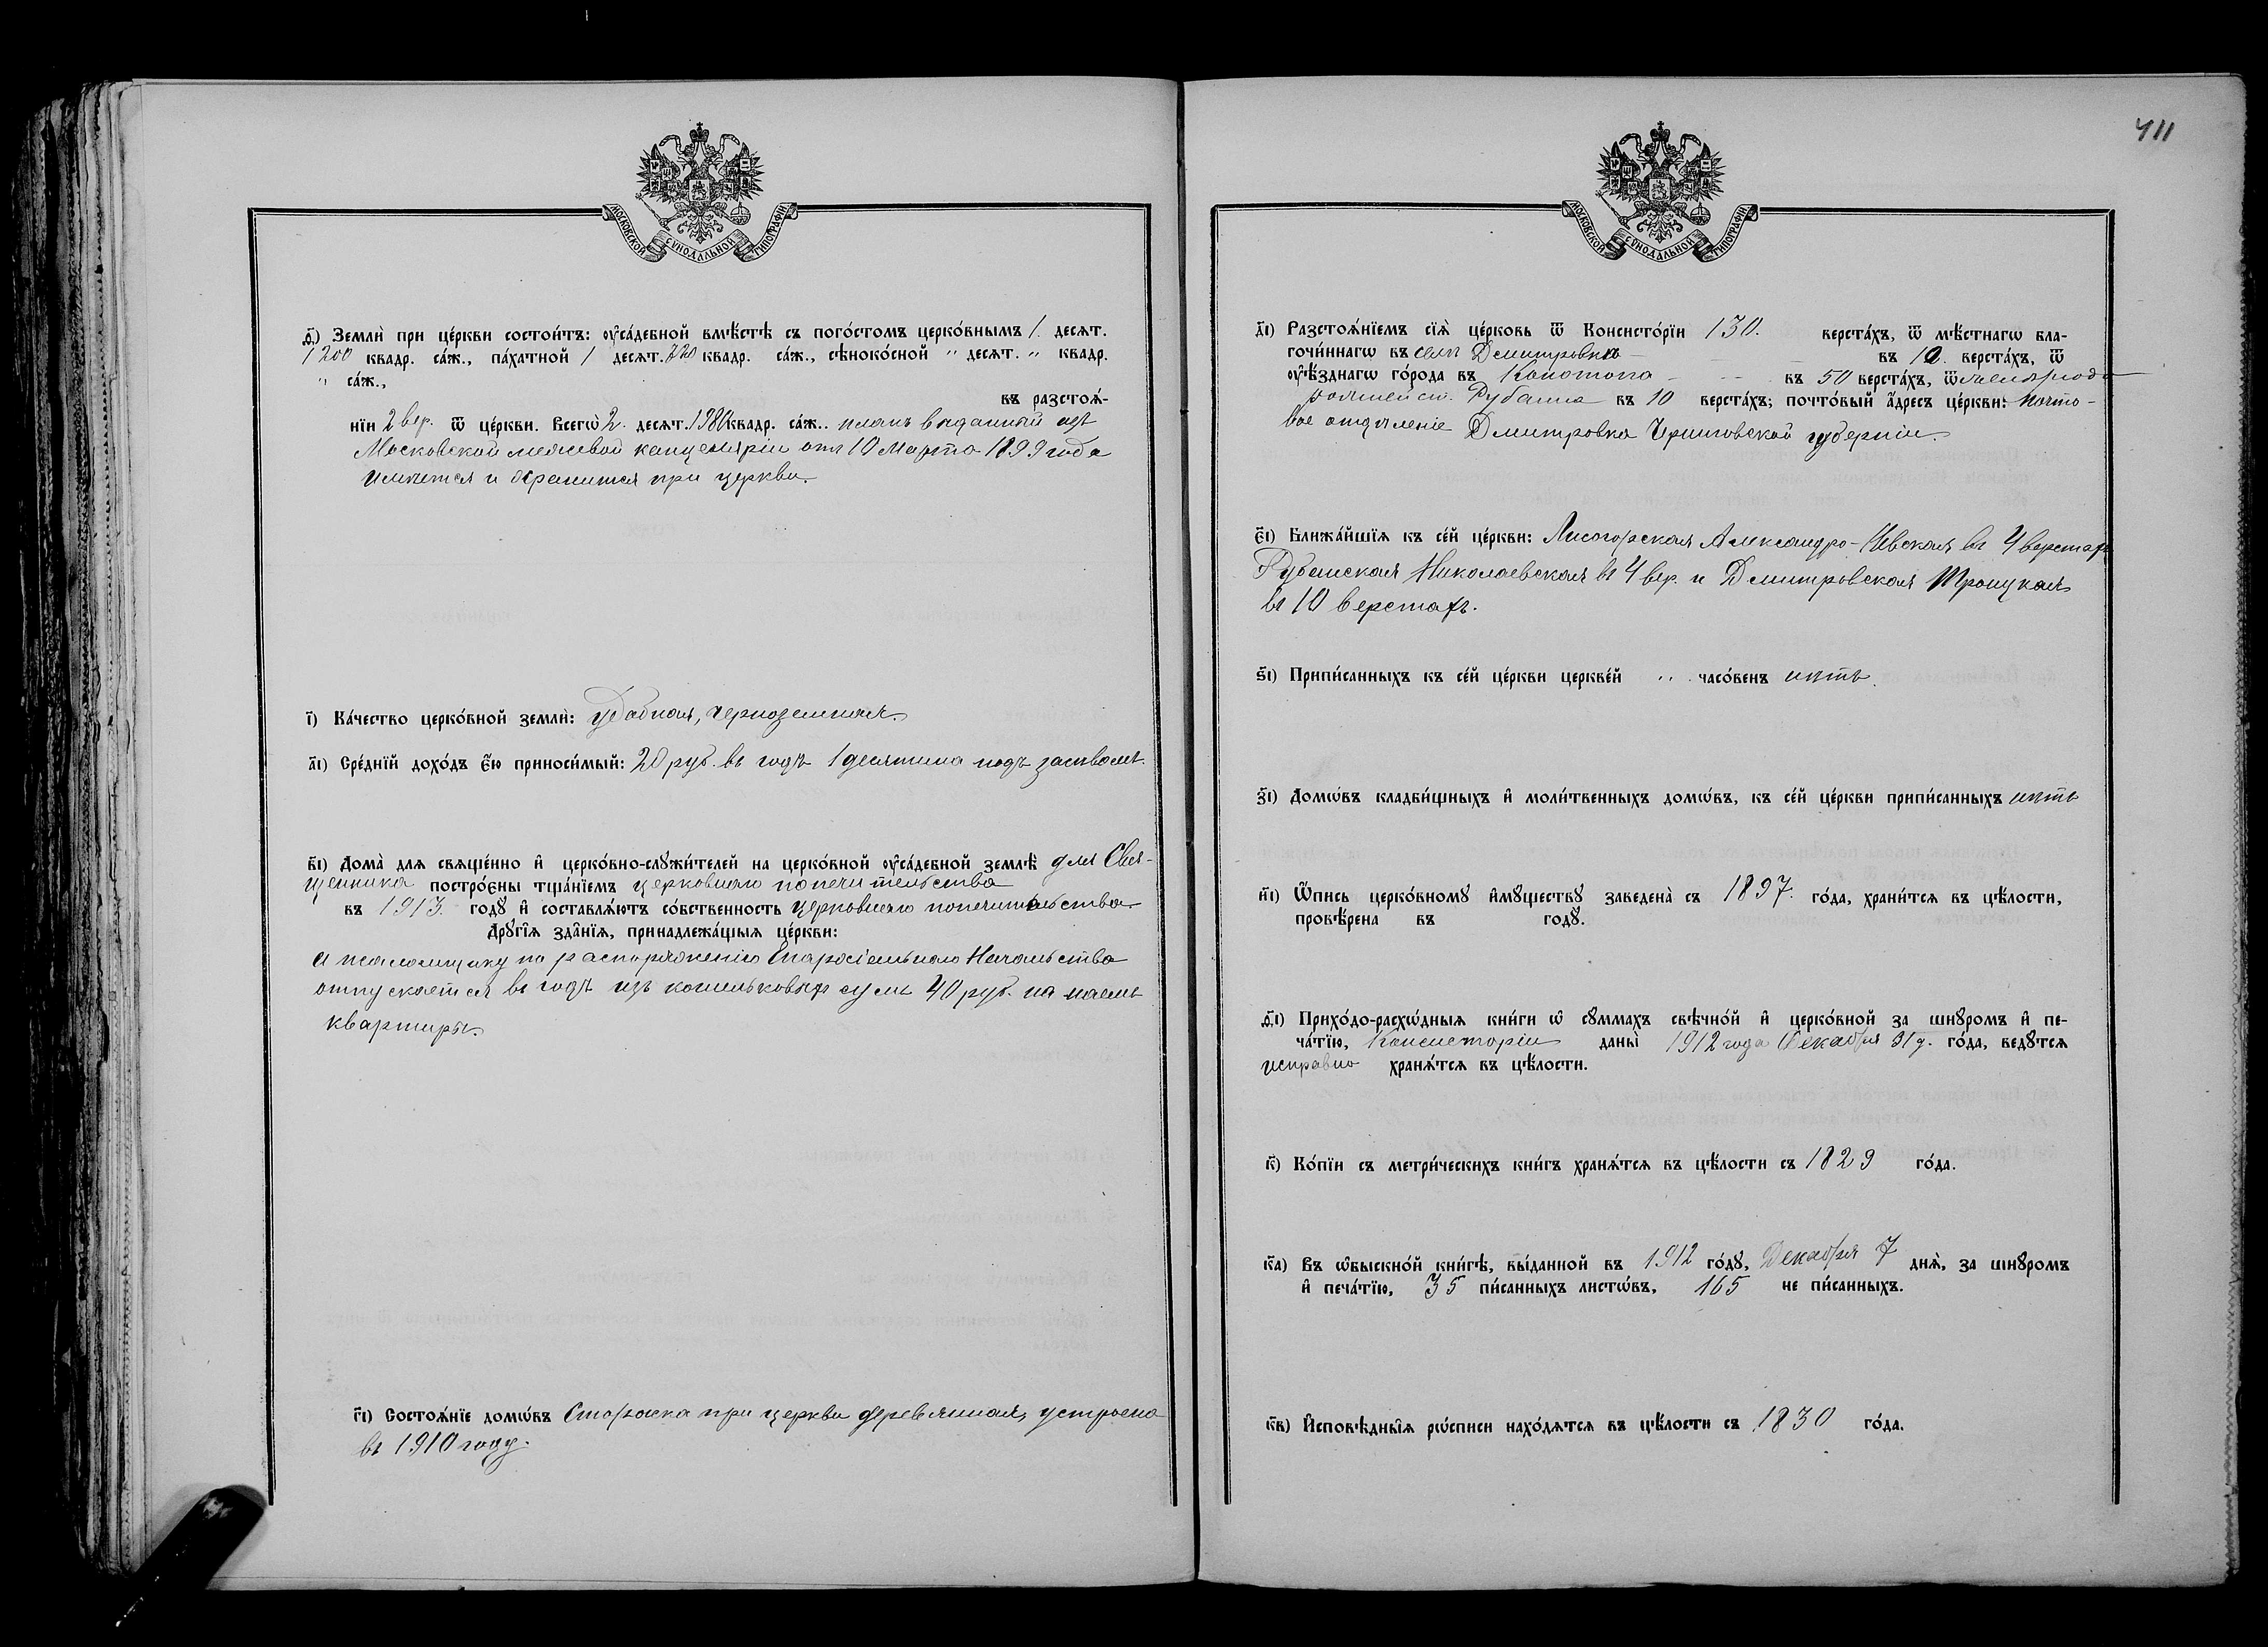 МОСКОВСКОЙ СѴНОДАЛЬНОЙ ТИПОГРАФІИ
ѳ҃) Землѝ при це́ркви состои́тъ: ᲂу҆са́дебной вмѣ́стѣ съ пого́стомъ церко́внымъ 1. десят.
1200 квадр. са́ж., па́хатной 1 десят. 780 квадр. са́ж., сѣноко́сной " десят. " квадр.
" са́ж.,
въ разстоѧ́-
нїи 2 вер. ѿ це́ркви. Всегѡ̀ 2. десят. 1980 квадр. са́ж.. планъ выданный изъ
Московской межевой канцеляріи отъ 10 Марта 1899 года
имѣется и хранится при церкви.
і҃) Ка́чество церко́вной землѝ: удобная, черноземная.
а҃і) Сре́днїй дохо́дъ є҆́ю приноси́мый: 20 руб. въ годъ 1 десятина подъ засѣвомъ.
в҃і) Дома̀ для свяще́нно и҆ церко́вно-слꙋжи́телей на церко́вной ᲂу҆са́дебной землѣ̀ для Свя-
щенника постро́єны тща́нїемъ церковнаго попечительства
въ 1913. годꙋ̀ и҆ составлѧ́ютъ со́бственность церковнаго попечительства
Дрꙋгі̑я зда̑нїя, принадлежа́щыя це́ркви:
а псаломщику по распоряженію Епархіальнаго Начальства
отпускается въ годъ изъ кошельковыхъ суммъ 40 руб. на наемъ
квартиры.
г҃і) Состоѧ́нїе домѡ́въ Сторожка при церкви деревянная, устроена
въ 1910 году.
411
МОСКОВСКОЙ СѴНОДАЛЬНОЙ ТИПОГРАФІИ
д҃і) Разстоѧ́нїемъ сїѧ̀ це́рковь ѿ Консисто́рїи 130. верста́хъ, ѿ мѣ́стнагѡ бла-
гочи́ннагѡ въ селѣ Дмитровкѣ въ 10. верста́хъ, ѿ
ᲂу҆ѣ́зднагѡ го́рода въ Конотопа въ 50 верста́хъ, ѿ
ст. Рубанка въ 10 верста́хъ; почто́вый а҆́дресъ це́ркви: почто-
вое отдѣленіе Дмитровка Черниговской губерніи.
є҃і) Ближа́йшїя къ се́й це́ркви: Лисогорская Александро-Невская въ 4 верстахъ
Рубанская Николаевская въ 4 вер. и Дмитровская Троицкая
въ 10 верстахъ.
ѕ҃і) Припи́санныхъ къ се́й це́ркви церкве́й " часо́венъ нѣтъ.
з҃і) Домѡ́въ кладби́щныхъ и҆ моли́твенныхъ домѡ́въ, къ се́й це́ркви припи́санныхъ нѣтъ
и҃і) Ѡ҆́пись церко́вномꙋ и҆мꙋ́ществꙋ заведена̀ съ 1897. го́да, храни́тся въ цѣ́лости,
провѣ́рена въ годꙋ̀.
ѳ҃і) Прихо́до-расхѡ́дныя кни́ги ѡ҆ сꙋ́ммахъ свѣчно́й и҆ церко́вной за шнꙋ́ромъ и҆ пе-
ча́тїю, Консисторіи даны̀ 1912 года Декабря 31 д. го́да, ведꙋ́тся
исправно хранѧ́тся въ цѣ́лости.
к҃) Ко́пїи съ метри́ческихъ кни́гъ хранѧ́тся въ цѣ́лости съ 1829 го́да.
к҃а) Въ ѡ҆быскно́й кни́гѣ, вы́данной въ 1912 го́дꙋ, Декабря 7 днѧ̀, за шнꙋ́ромъ
и҆ печа́тїю, 35 пи́санныхъ листѡ́въ, 165 не пи́санныхъ.
к҃в) И҆сповѣ́дныя рѡ́списи нахо́дятся въ цѣ́лости съ 1830 го́да.